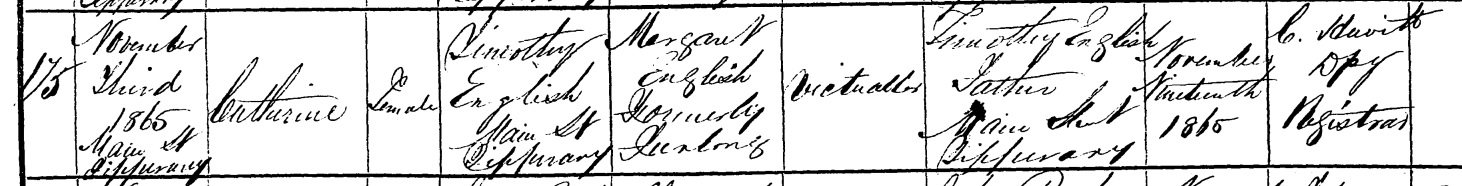 175
November
Third
1865
Main St
Tipperary
Catherine
Female
Timothy
English
Main St
Tipperary
Margaret
English
Formerly
Furlong
Victualler
Timothy English
Father
Main Street
Tipperary
November
Nineteenth
1865
C. Havitt
Dpy
Registrar